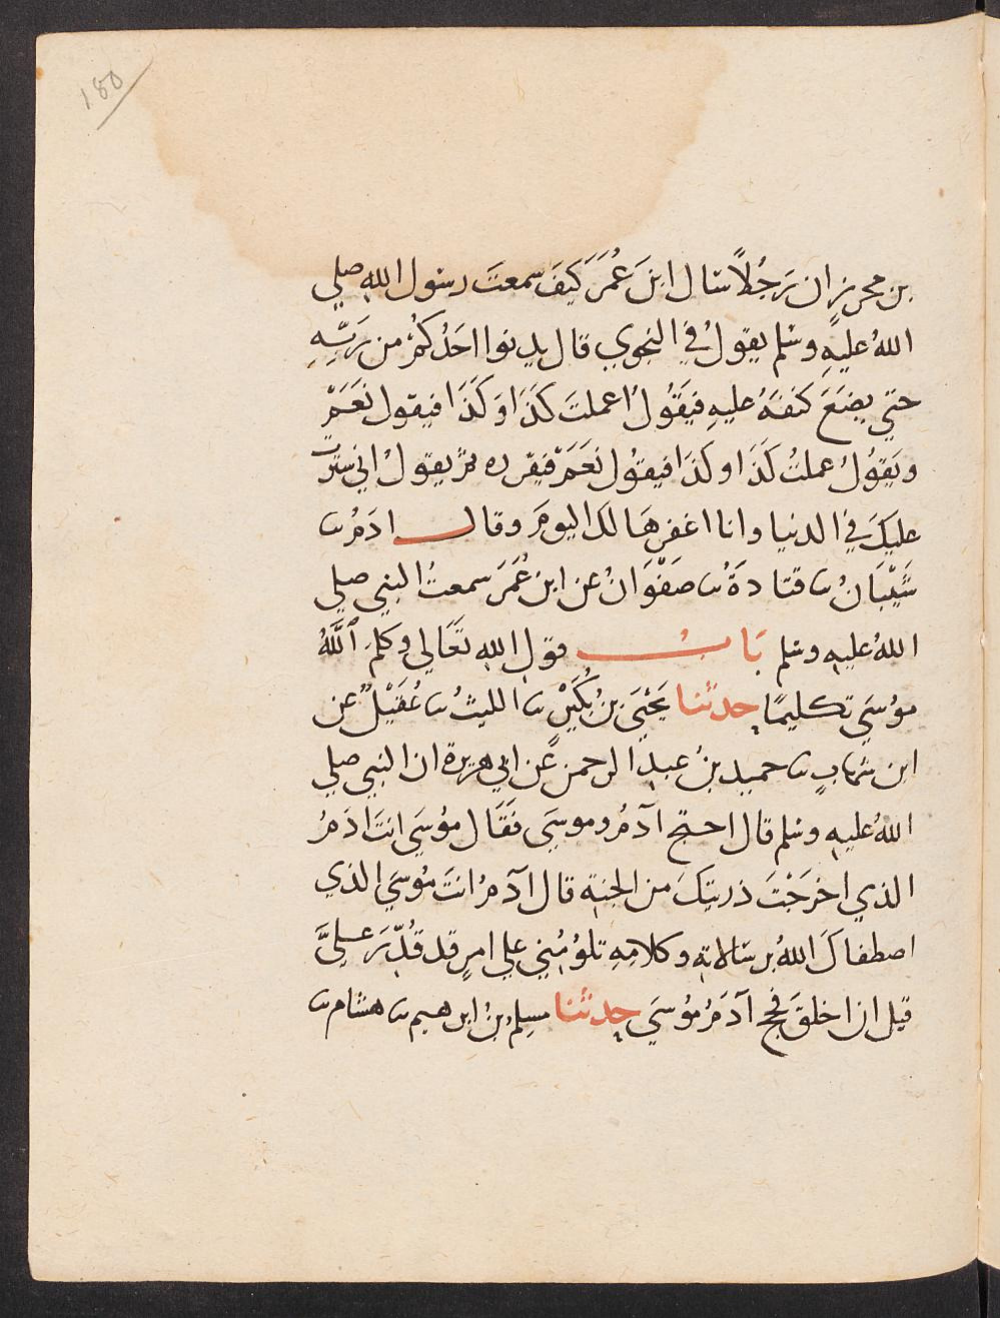 180
بن محرزٍ ان رَجُلاً سَال ابنَ عُمَرَ كَيفَ سمعتَ رسُول الله صلي
اللهُ عليهِ وسَلم يقولُ في النجوي قال يدنوا احَدُكمْ من رَبّهِ
حتي يضعَ كنفهُ عليهِ فيَقُولُ اعملتَ كذَا وَكَذا فيقول نعَمْ
ويَقوُلُ عملتُ كَذَا وكذَا فيقوُل نعَمْ فيقرره ثمّ يقولُ اني سَترتُ
عليكَ في الدنيا وانا اغفرهَا لك اليومَ وقال ادَمُ ثنا
شَيْبَانُ ثنا قتادةُ ثنا صَفْوَانُ عن ابن عُمَرَ سمعتُ النبي صلي
اللهُ عليهِ وسَلم بَابُ قول اللهِ تعَالي وكلمَ اللَّهُ
موُسَي تكليمًا حدثنا يَحْيَي بنُ بُكَيْرٍ ثنا الليثُ ثنا عُقَيْلٌ عن
ابن شهابٍ ثنا حميد بنُ عبدِ الرحمن عَن ابي هريرة ان النبي صلي
اللهُ عليهِ وسَلم قال احتج آدمُ وموسَي فقَال موُسَي انتَ ادَمُ
الذي اخرَجْتَ ذريتكَ من الجنةِ قال آدمُ انتَ مُوسَي الذي
اصطفاكَ اللهُ برسَالاتهِ وكلامِهِ تلوُمُني علي امرٍ قد قُدّرَ عليَّ
قبل ان اخلقَ فحج آدَمُ مُوسَي حدثنا مسلمُ بنُ ابرهيم ثنا هشام ثنا